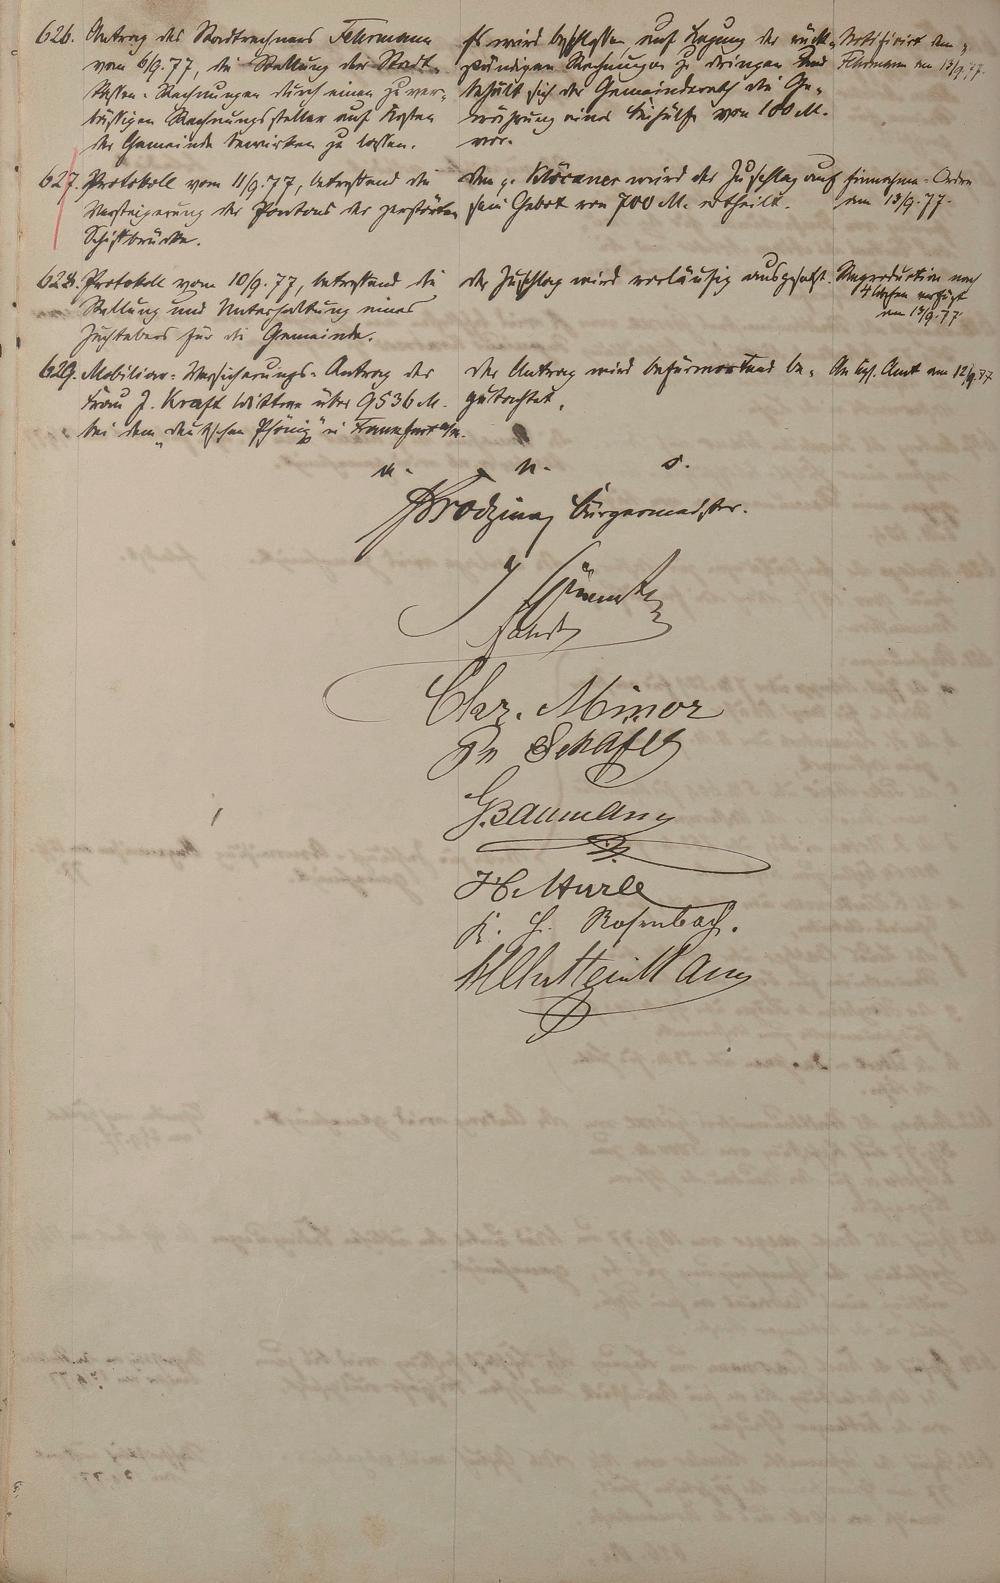 626. Antrag des Stadtrechners Fehrmann
vom 6/9.77, die Stellung der Stadt-
kassen-Rechnungen durch einen zuver-
lässigen Rechnungssteller auf Kosten
der Gemeinde bewirken zu lassen.
Es wird beschlossen, auf Legung der rück-
ständigen Rechnungen zu dringen und
behält sich der Gemeinderath die Ge-
währung einer Beihülfe von 100 M.
vor.
Notifizirt dem
Fehrmann am 13/9.77.
627. Protokoll vom 11/9.77, betreffend die
Versteigerung der Pontons der zerstörten
Schiffbrücke.
Dem p. Klöckner wird der Zuschlag auf
sein Gebot von 700 M. ertheilt.
Einnahme-Ordre
am 13/9.77.
628. Protokoll vom 10/9.77, betreffend die
Stellung und Unterhaltung eines
Zuchtebers für die Gemeinde.
Der Zuschlag wird vorläufig ausgesetzt.
Reproduction nach
4 Wochen verfügt
am 13/9.77
629. Mobiliar-Versicherungs-Antrag der
Frau J. Kraft Wittwe über 9536 M.
bei dem "Deutschen Phönix" in Frankfurt a/m.
Der Antrag wird befürwortend be-
gutachtet.
An Kgl. Amt am 12/9.77
u. n. s.
Bürgermeister.
Chr. Minor
Ph Schäfer
G. Baumann
K. H. Rosenbach.